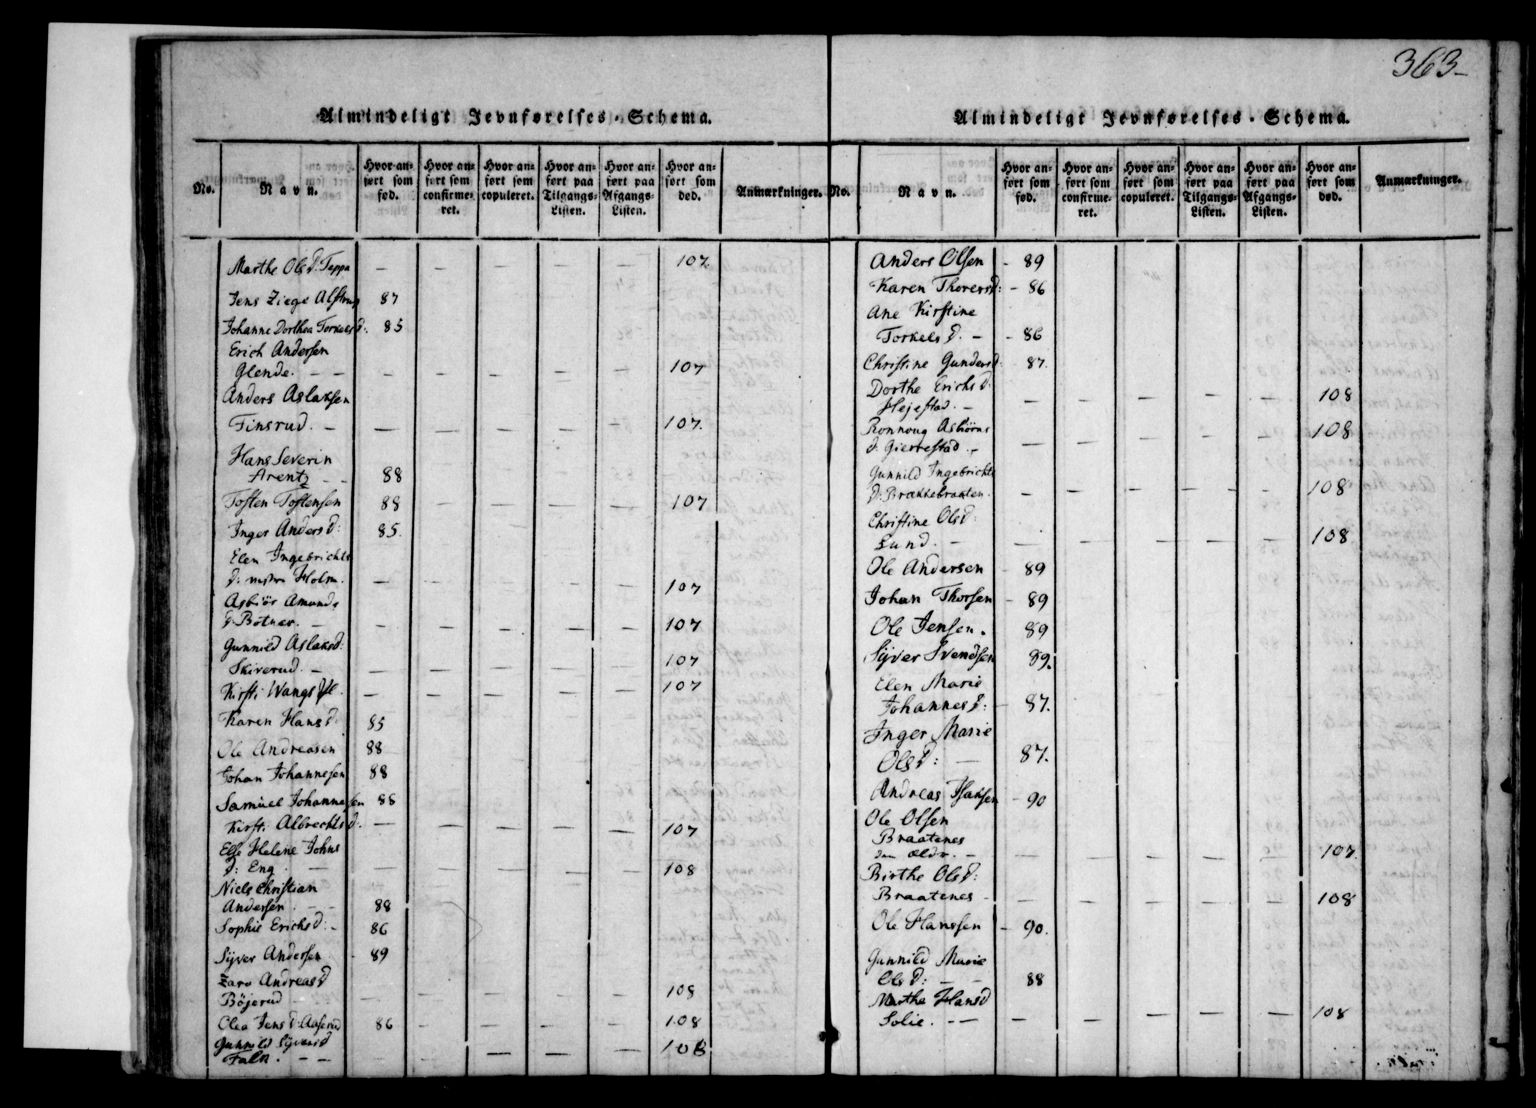 363-
Almindeligt Jevnførelses-Schema.
No.
Navn.
Hvor an-
ført som
fød.
Hvor an-
ført som
confirme-
ret.
Hvor an-
ført som
copuleret.
Hvor an-
ført paa
Tilgangs-
Listen.
Hvor an-
ført paa
Afgangs-
Listen.
Hvor an-
ført som
død.
Anmærkninger.
Marthe Olsd: Teppa — — — — — 107
Jens Ziege Alstrup 87
Johanne Dorthea Torkelsd: 85
Erich Andersen
Glende. — — — — — — — 107
Anders Aslaksen
Finsrud. — — — — — — 107.
Hans Severin
Arentz — — 88
Tosten Tostensen 88 — — — — 107
Inger Andersd: 85.
Elen Ingebrichts
d: Holm. — — — — — 107
Asbiør Amunds
d: Botner. — — — — — — 107
Gunnild Aslaksd:
Skiverud. — — — — — — 107
Kirsti Wangs — — — — — 107
Karen Hansd: 85
Ole Andreasen 88
Johan Johannesen 88
Samuel Johannesen 88
Kirsti Albrechtsd. — — — — — 107
Else Helene Johns
d: Eng — — — — — — 108
Niels Christian
Andersen. — — 88
Sophie Erichsd: - 86
Syver Andersen - 89
Zara Andreasd
Böjerud — — — — — — 108
Olea Jensd: Aaserud 86 — — — — 108
Gunnild Syversd
Falk. — — — — — 108
Almindeligt Jevnførelses-Schema.
No.
Navn.
Hvor an-
ført som
fød.
Hvor an-
ført som
confirme-
ret.
Hvor an-
ført som
copuleret.
Hvor an-
ført paa
Tilgangs-
Listen.
Hvor an-
ført paa
Afgangs-
Listen.
Hvor an-
ført som
død.
Anmærkninger.
Anders Olsen - 89
Karen Thorersd: - 86
Ane Kirstine
Torkelsd. — - 86
Christine Gundersd: 87.
Dorthe Erichsd:
Hejestad. — — — — — — 108
Ronnoug Asbiørns
d. Gierrestad. — — — — — — 108
Gunnild Ingebrichts
d: Brækkebrakken. — — — — — 108
Christine Olsd:
Lund. — — — — — — 108
Ole Andersen - 89
Johan Thorsen - 89
Ole Jensen. 89
Syver Svendsen 89.
Elen Marie
Johannesd: — 87.
Inger Marie
Olsd: — 87.
Andreas Isaksen - 90
Ole Olsen
Braatenes
den ældr. — — — — — — 107.
Birthe Olsd:
Braatenes — — — — — 108
Ole Hanssen - 90.
Gunnild Marie
Olsd: — — 88
Marthe Hansd
Solie. — — — — — — 108